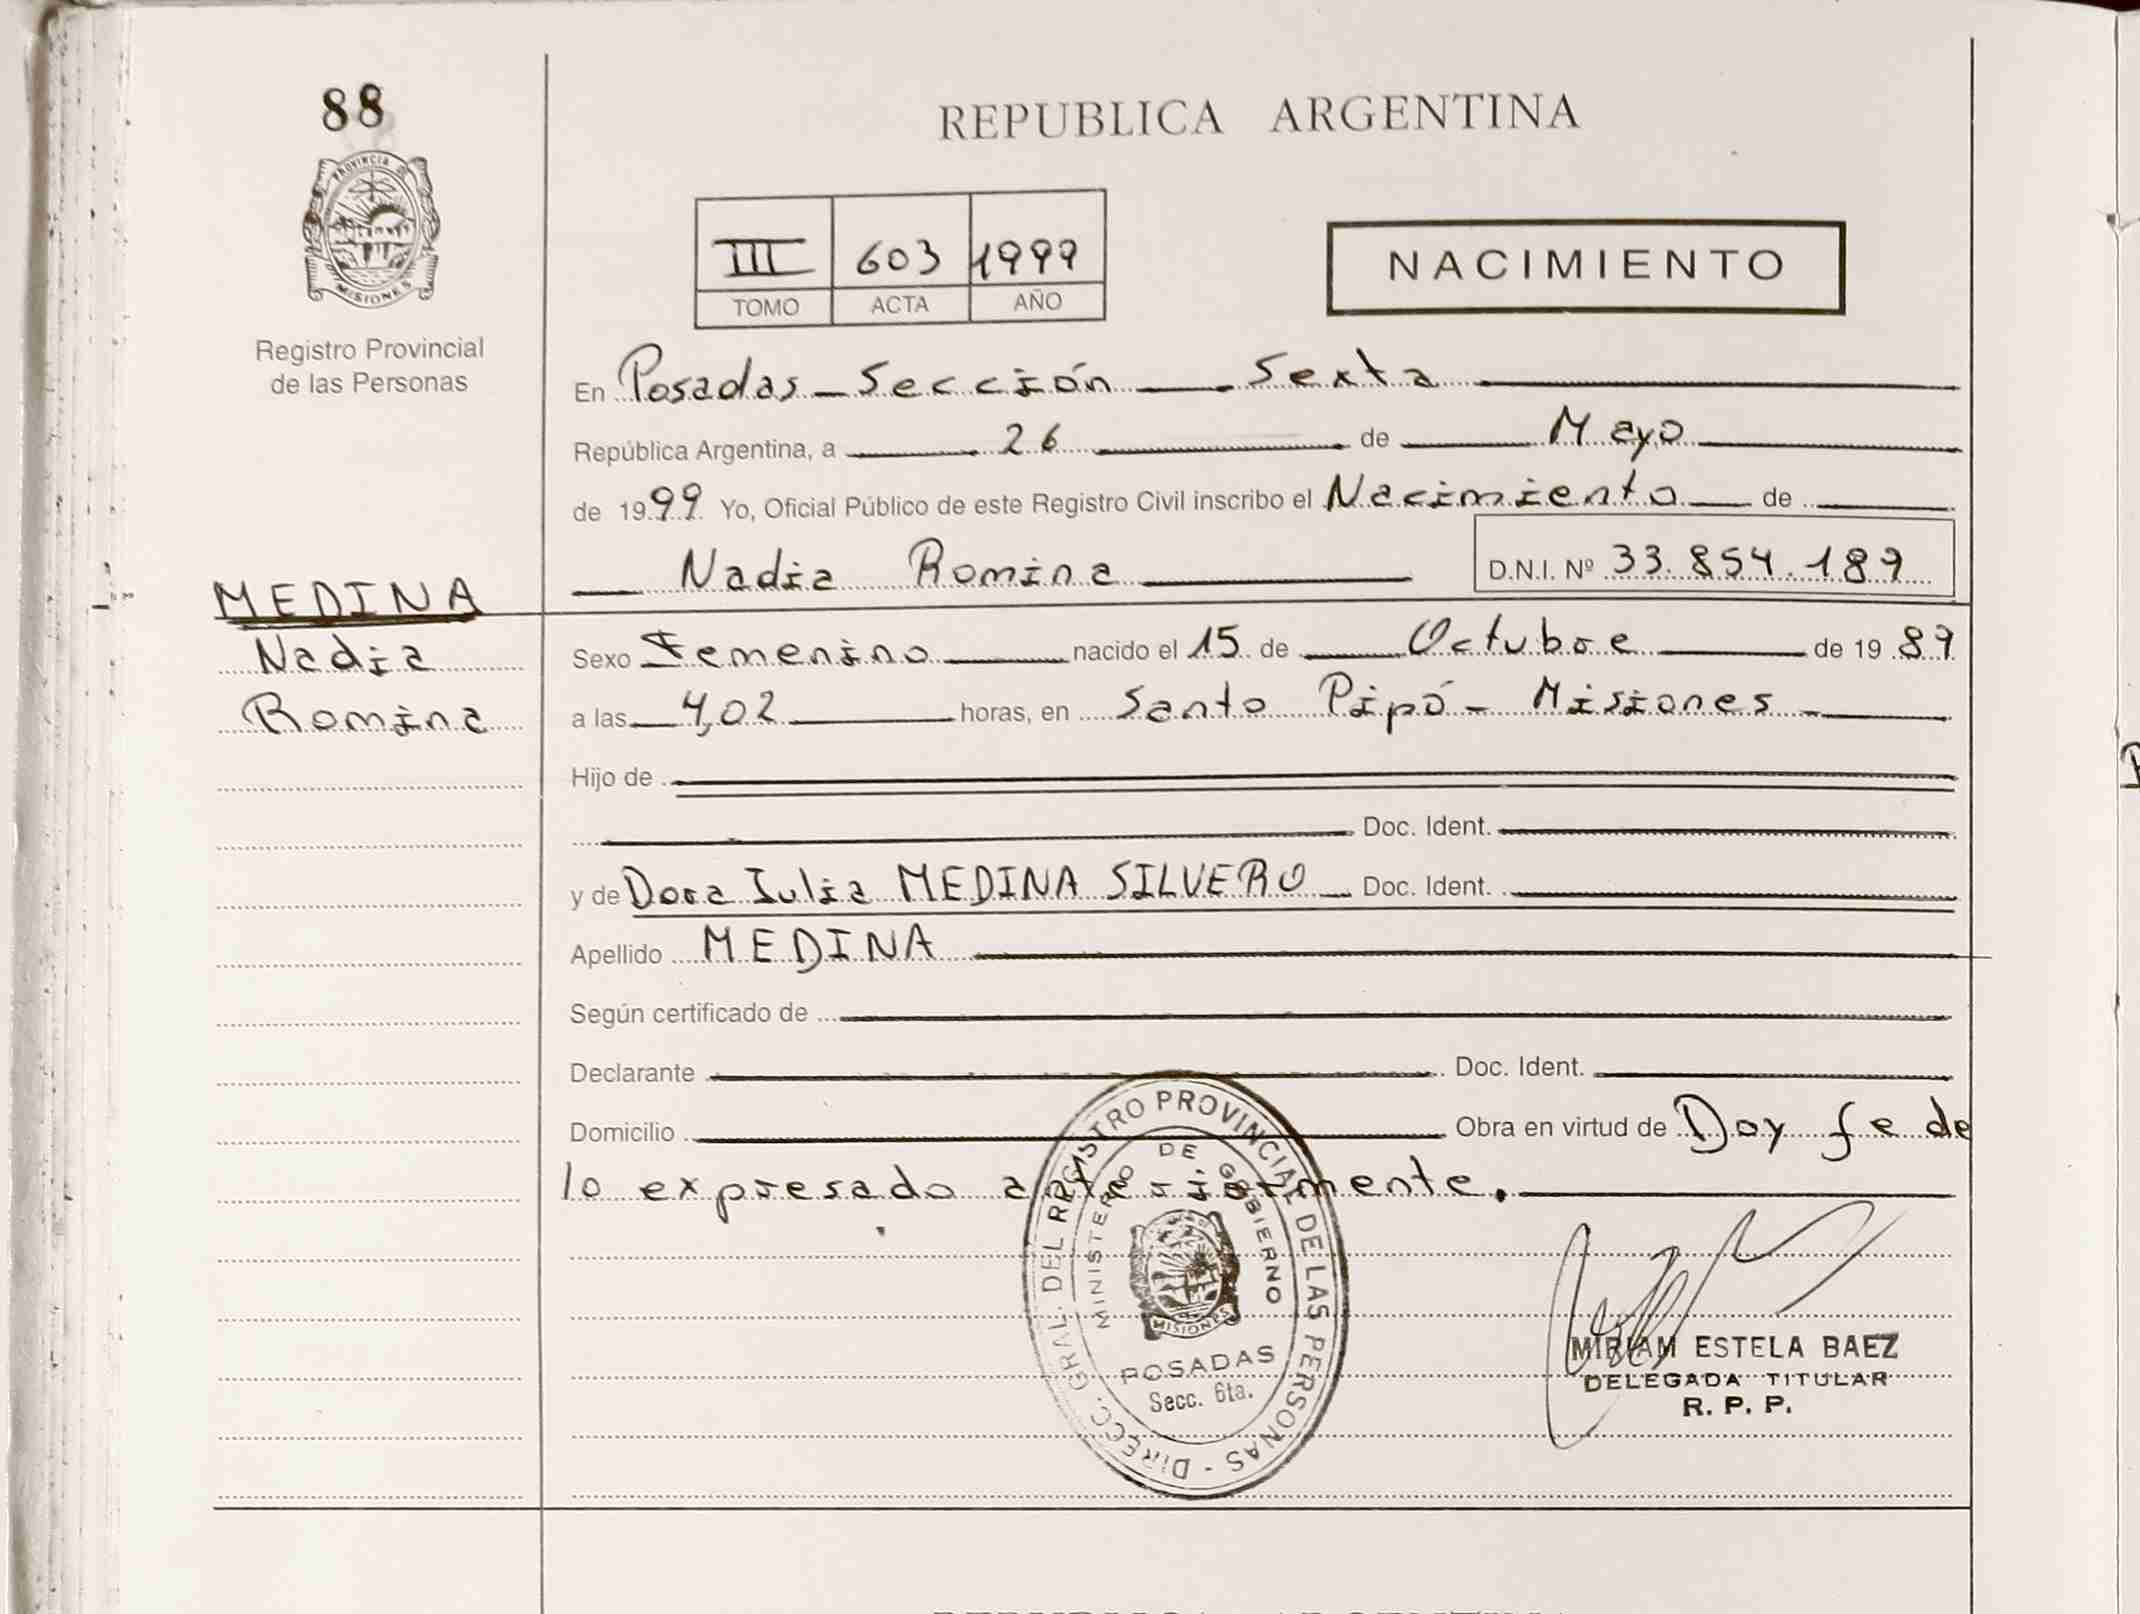 88
PROVINCIA
MISIONES
Registro Provincial
de las Personas
MEDINA
Nadia
Romina
REPUBLICA ARGENTINA
III 603 1999
TOMO ACTA AÑO
NACIMIENTO
En Posadas - Sección - Sexta
República Argentina, a 26 de Mayo
de 1999 Yo, Oficial Público de este Registro Civil inscribo el Nacimiento de
Nadia Romina D.N.I. Nº 33.854.189
Sexo Femenino nacido el 15 de Octubre de 1989
a las 4,02 horas, en Santo Pipó - Misiones -
Hijo de
Doc. Ident.
y de Dora Iulia MEDINA SILVERO Doc. Ident.
Apellido MEDINA
Según certificado de
Declarante Doc. Ident.
Domicilio Obra en virtud de Doy fe de
lo expresado anteriormente.
DIRECC. GRAL. DEL REGISTRO PROVINCIAL DE LAS PERSONAS -
MINISTERIO DE GOBIERNO
MISIONES
POSADAS
Secc. 6ta.
MIRIAM ESTELA BAEZ
DELEGADA TITULAR
R. P. P.